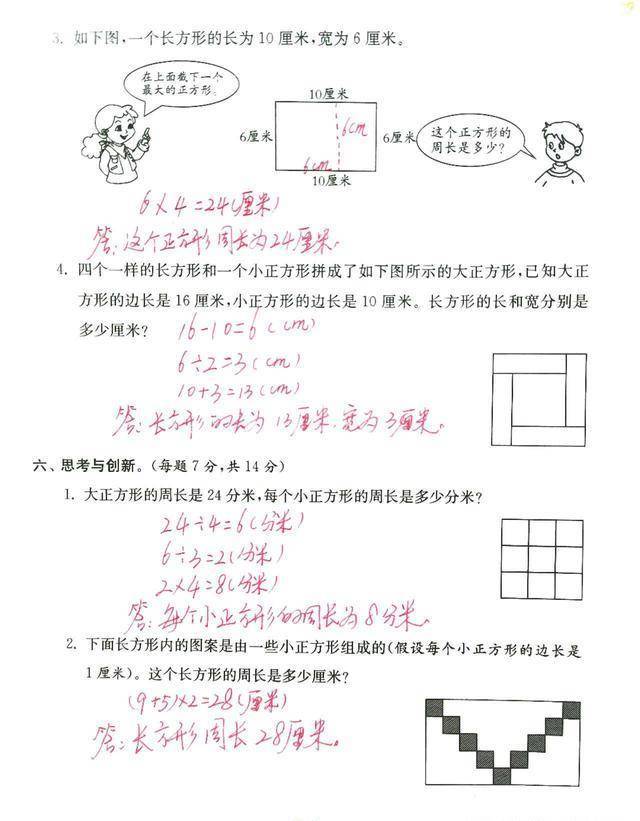 3. 如下图,一个长方形的长为 10 厘米,宽为 6 厘米。
在上面截下一个
最大的正方形.
10厘米
6厘米
6cm
6cm
6厘米
10厘米
这个正方形的
周长是多少?
6×4=24(厘米)
答:这个正方形周长为24厘米。
4. 四个一样的长方形和一个小正方形拼成了如下图所示的大正方形,已知大正
方形的边长是 16 厘米,小正方形的边长是 10 厘米。长方形的长和宽分别是
多少厘米?
16-10=6(cm)
6÷2=3(cm)
10+3=13(cm)
答:长方形的长为 13厘米,宽为3厘米。
六、思考与创新。(每题 7 分,共 14 分)
1. 大正方形的周长是 24 分米,每个小正方形的周长是多少分米?
24÷4=6(分米)
6÷3=2(分米)
2×4=8(分米)
答:每个小正方形的周长为8分米。
2. 下面长方形内的图案是由一些小正方形组成的(假设每个小正方形的边长是
1 厘米)。这个长方形的周长是多少厘米?
(9+5)×2=28(厘米)
答:长方形周长28厘米。